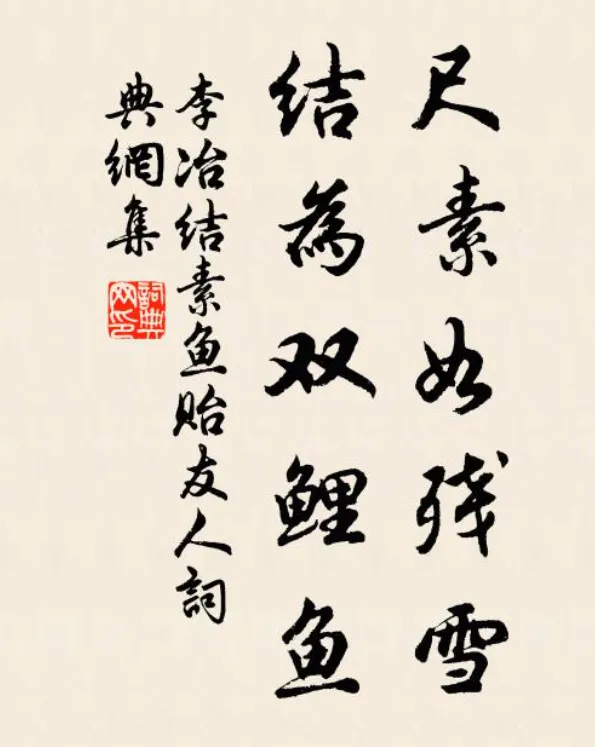 尺素如残雪
结為双鲤鱼
李冶结素鱼贻友人詞
典網集
詞典网印